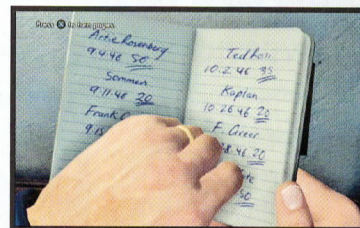 Press X to turn pages.
Artie Rosenberg
9.4.46 50
Sommers
9.11.46 20
Frank
9.15
Ted
10.2.46
Kaplan
10.26.46 20
F. Greer
8.46 20
50